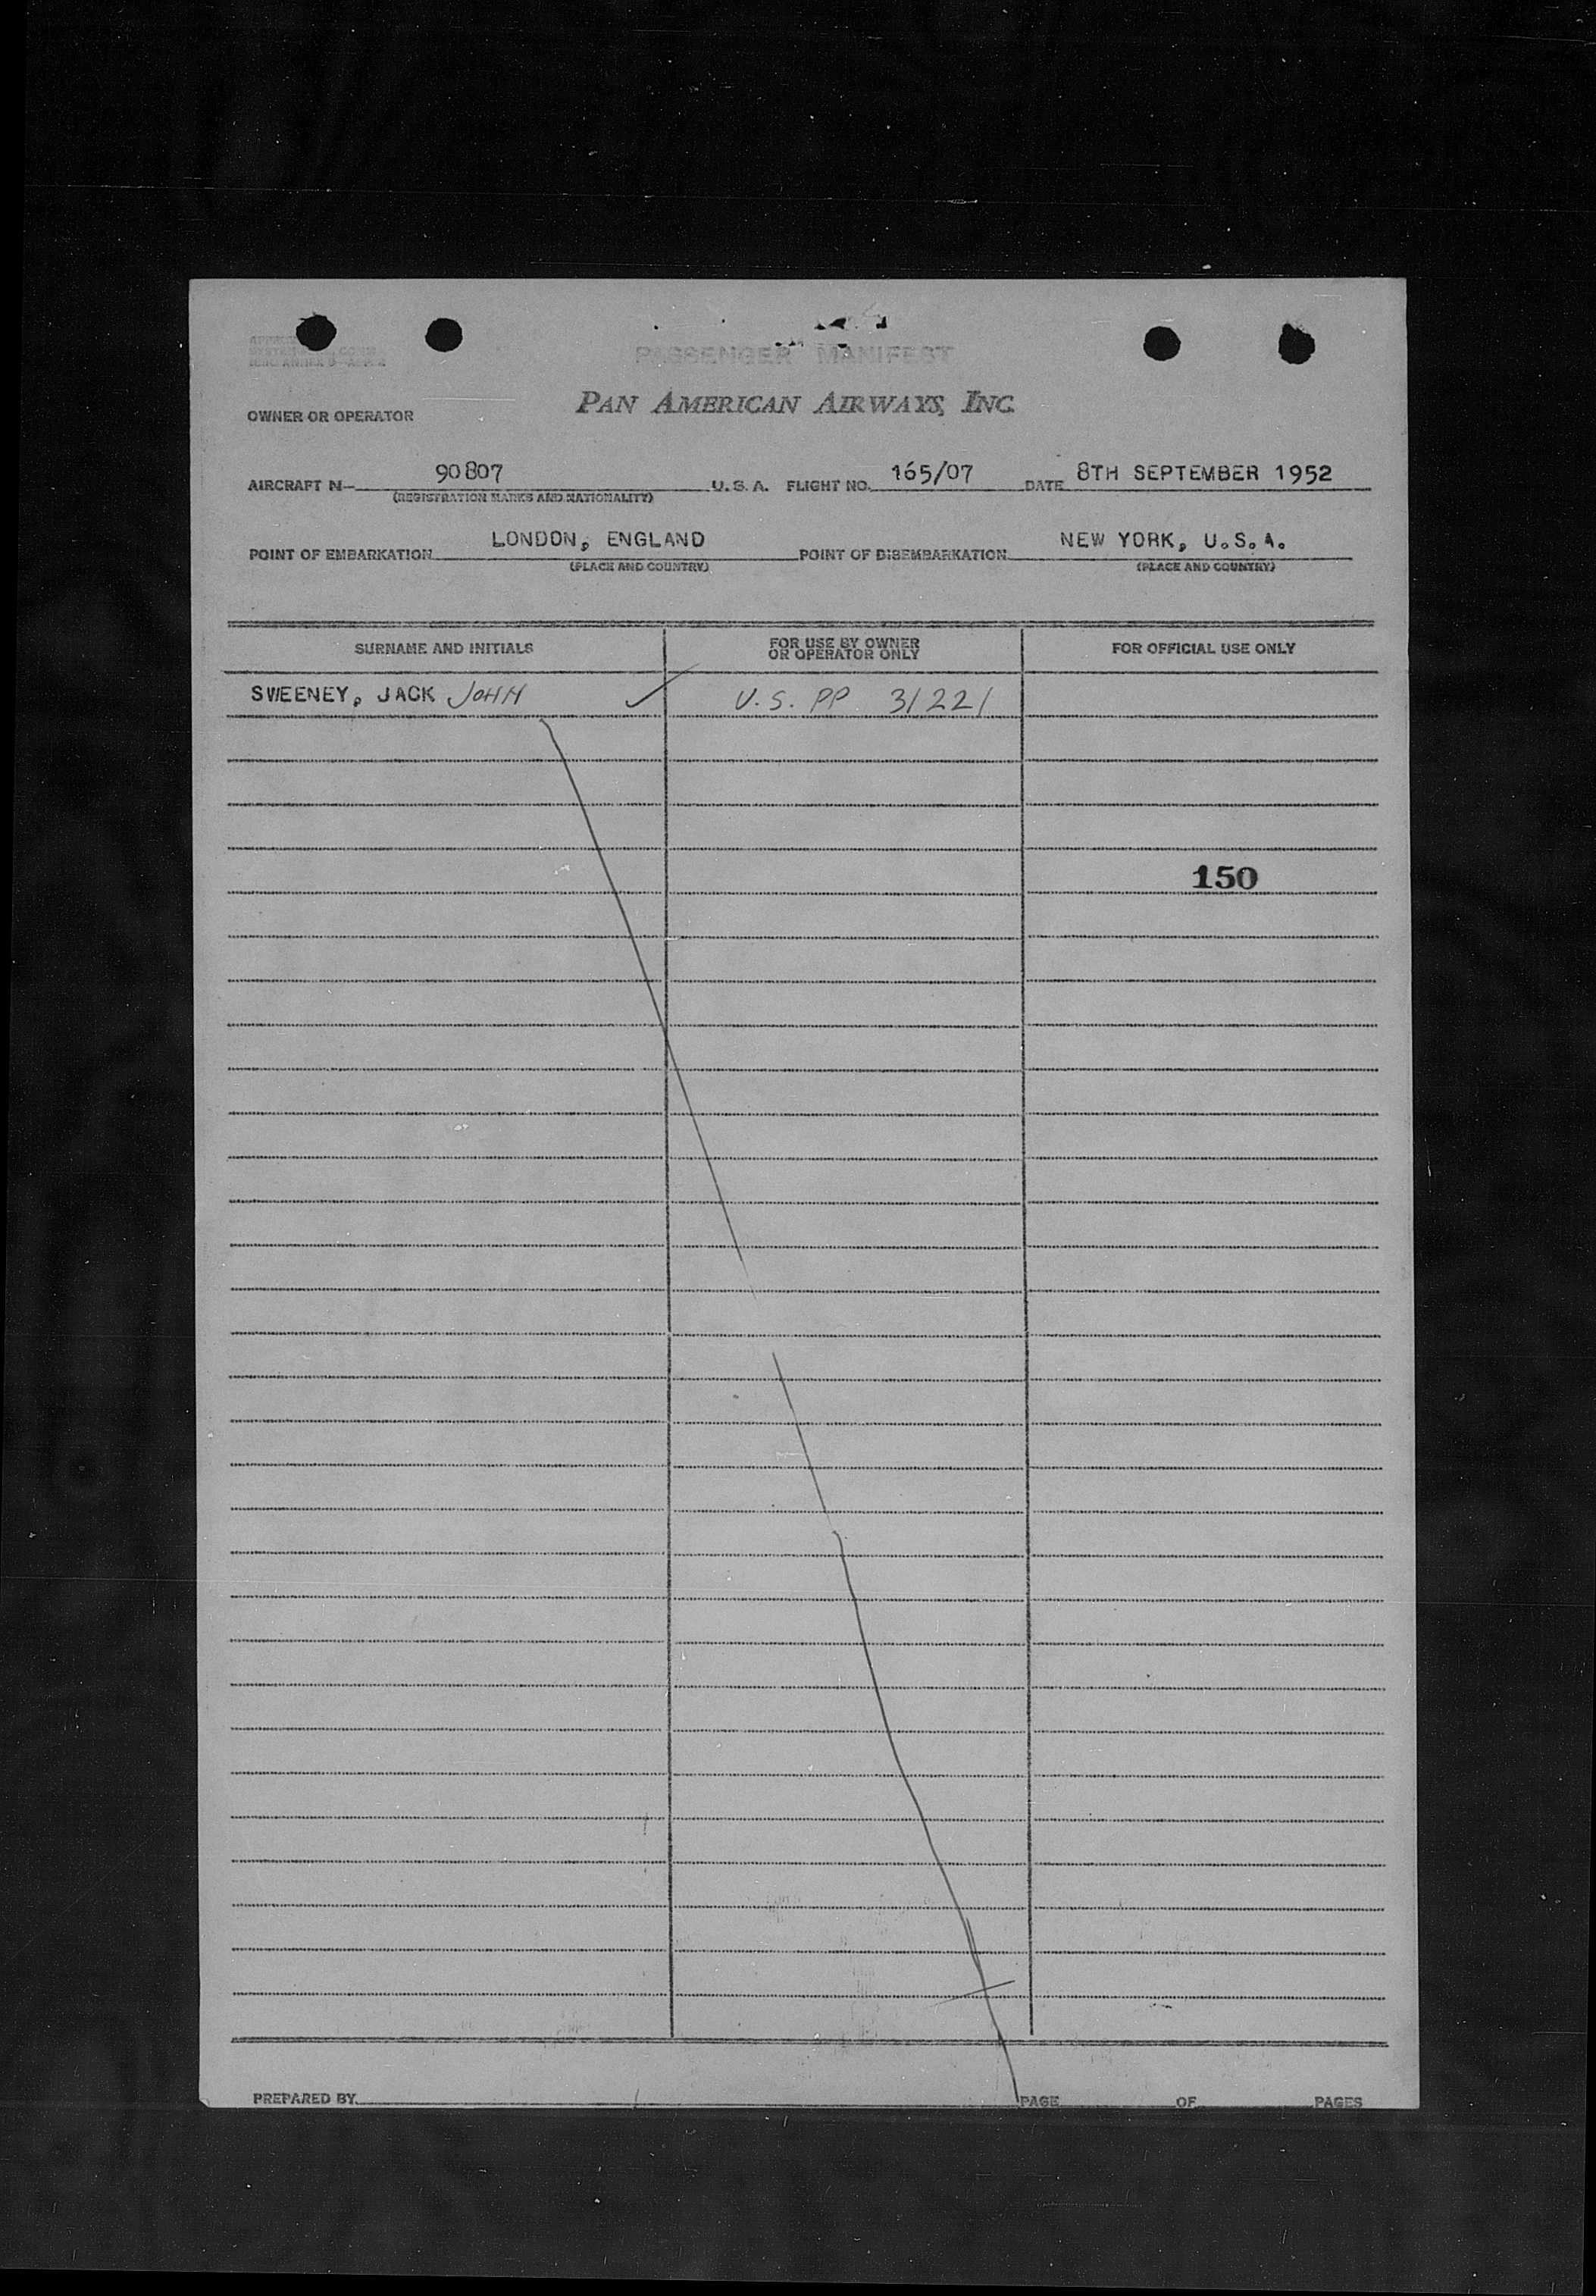 PASSENGER MANIFEST
PAN AMERICAN AIRWAYS, INC.
OWNER OR OPERATOR
AIRCRAFT N- 90807 U.S.A. FLIGHT NO. 165/07 DATE 8TH SEPTEMBER 1952
(REGISTRATION MARKS AND NATIONALITY)
POINT OF EMBARKATION LONDON, ENGLAND POINT OF DISEMBARKATION NEW YORK, U.S.A.
(PLACE AND COUNTRY) (PLACE AND COUNTRY)
SURNAME AND INITIALS FOR USE BY OWNER OR OPERATOR ONLY FOR OFFICIAL USE ONLY
SWEENEY, JACK JOHN ✓ U.S. PP 31221
150
PREPARED BY PAGE OF PAGES